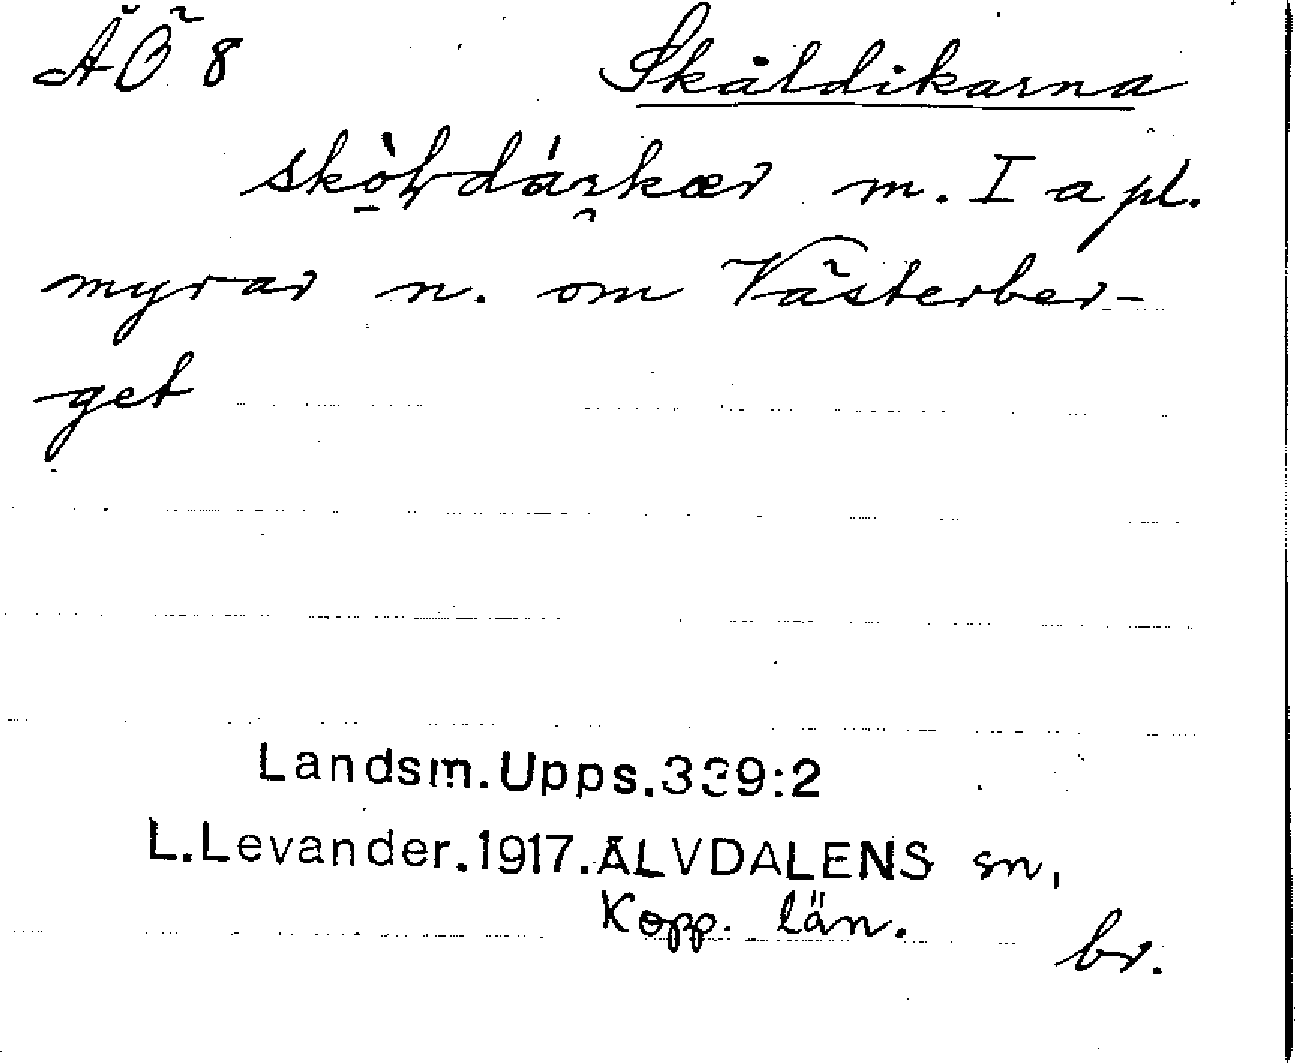 ÄÖ 8 Skåldikarna
m. I a pl.
myrar n. om Västerber-
get
Landsm.Upps.339:2
L.Levander.1917.ÄLVDALENS sn,
Kopp. län.
br.